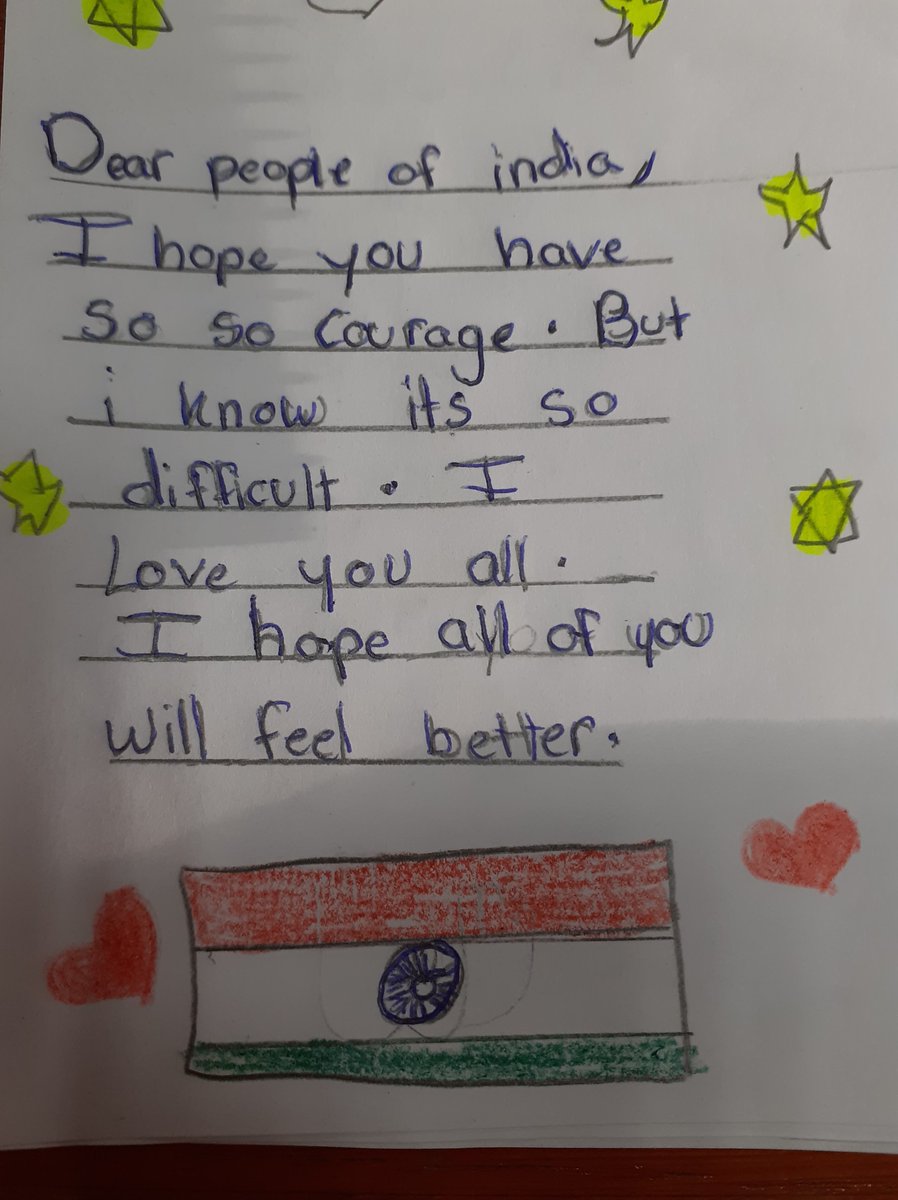 Dear people of india,
I hope you have
so so courage. But
i know its so
difficult. I
Love you all.
I hope all of you
will feel better.